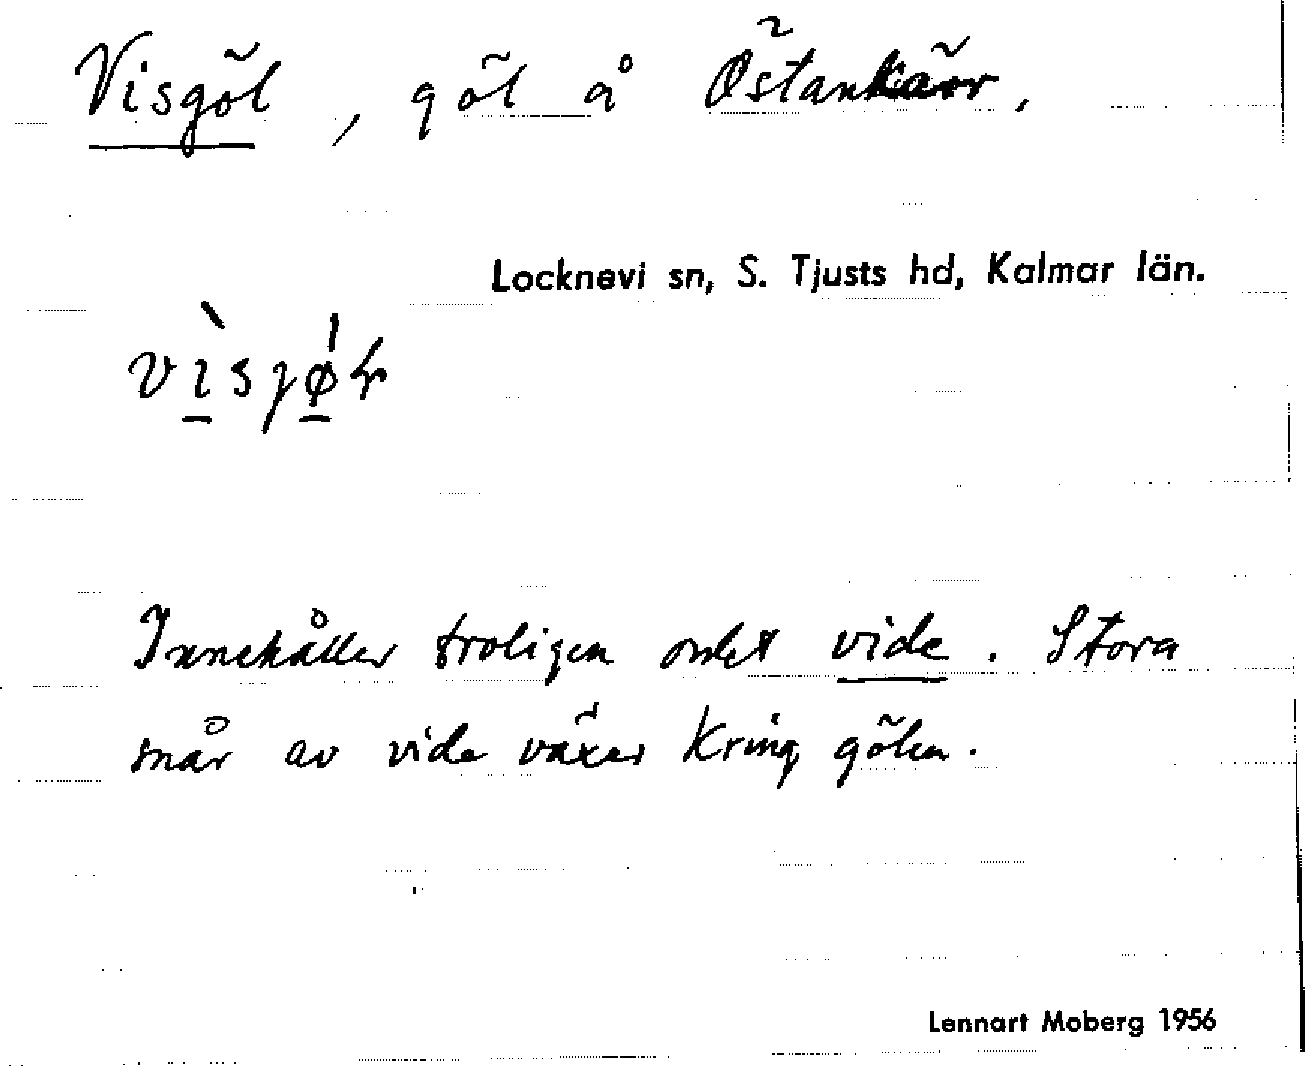 Visgöl, göl å Östankärr.
Locknevi sn, S. Tjusts hd, Kalmar län.
Innehåller troligen ordet vide. Stora
snår av vide växer kring gölen.
Lennart Moberg 1956